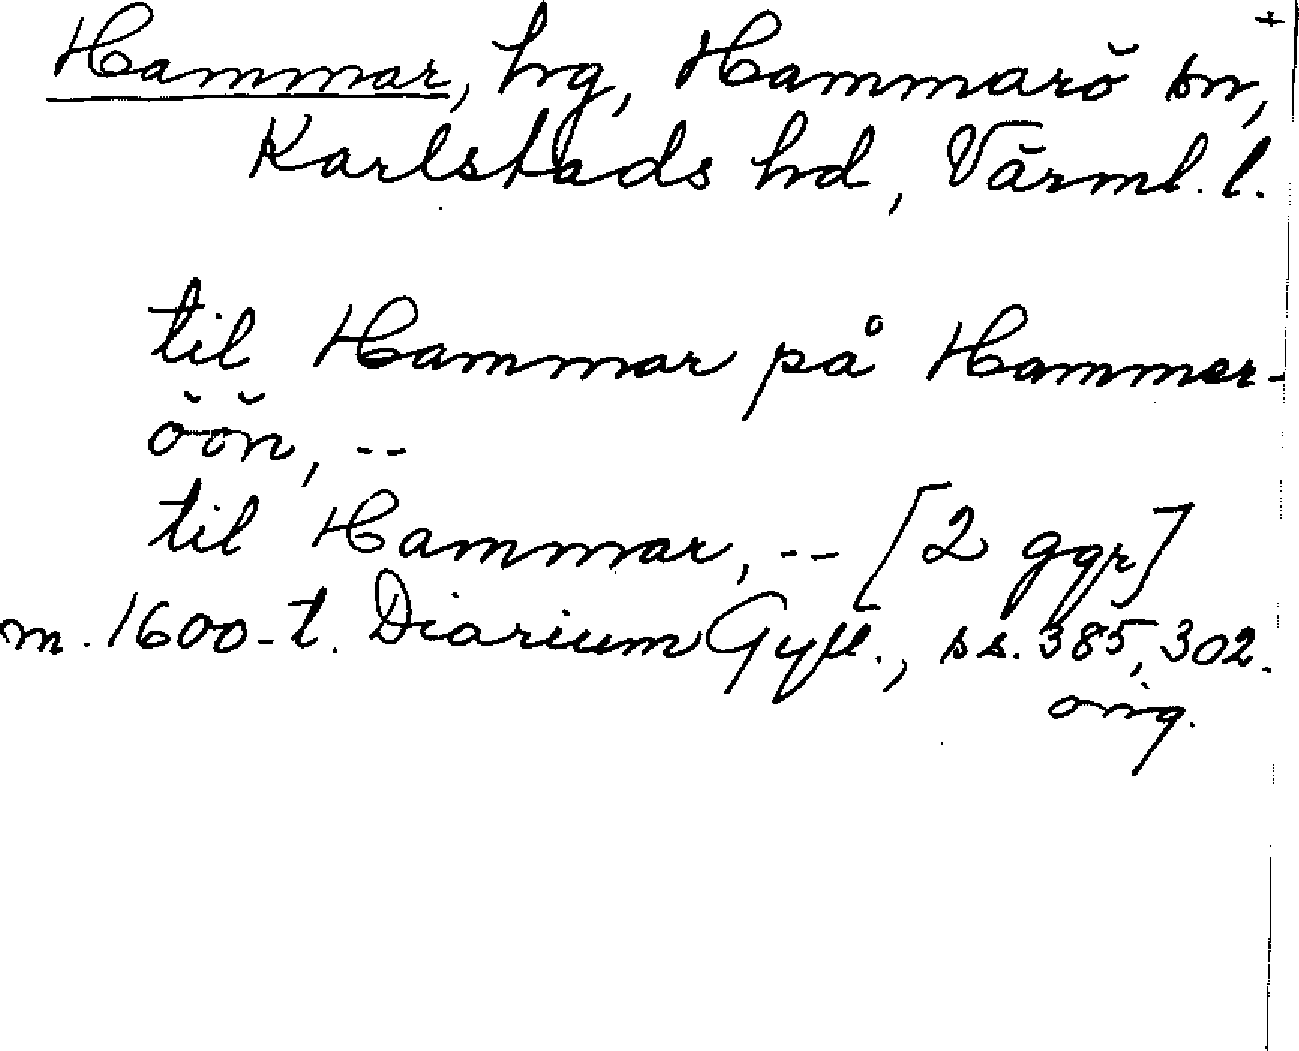 Hammar, hg, Hammarö sn, +
Karlstads hd, Värml. l.
til Hammar på Hammer-
öön, --
til Hammar, -- [2 ggr]
m. 1600-t. Diarium Gyll., ss. 385, 302.
orig.